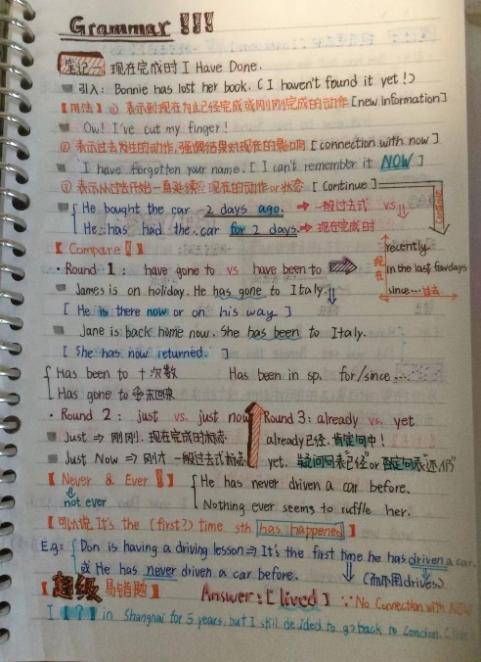 Grammar !!!
笔记一 现在完成时 I Have Done.
引入: Bonnie has lost her book. ( I haven't found it yet !)
【用法】① 表示到现在为止已经完成或刚刚完成的动作 [new information]
Ow! I've cut my finger!
② 表示过去发生的动作,强调结果对现在的影响 [connection with now]
I have forgotten your name. [ I can't remember it NOW ]
③ 表示从过去开始一直延续到现在的动作or状态 [Continue]
He bought the car 2 days ago. → 一般过去式 vs
He has had the car for 2 days. → 现在完成时
【Compare】
recently
in the last few days
since... 过去
现在
· Round 1: have gone to vs have been to
James is on holiday. He has gone to Italy.
[ He is there now or on his way. ]
Jane is back home now. She has been to Italy.
[ She has now returned. ]
Has been to 十次数 Has been in sp. for/since ...
Has gone to 未回来
· Round 2: just vs. just now Round 3: already vs. yet
Just ⇒ 刚刚. 现在完成时标志 already 已经. 肯定句中!
Just Now ⇒ 刚才 一般过去式标志 yet. 疑问句表“已经”or否定句表“还,仍”
【Never & Ever !】 He has never driven a car before.
not ever Nothing ever seems to ruffle her.
【可以说 It's the (first?) time sth has happened】
E.g: Don is having a driving lesson ⇒ It's the first time he has driven a car.
或 He has never driven a car before. (而不用drives)
【超级易错题】 Answer: [lived] ∵ No Connection with NOW
I [ ? ] in Shanghai for 5 years, but I still decided to go back to London.